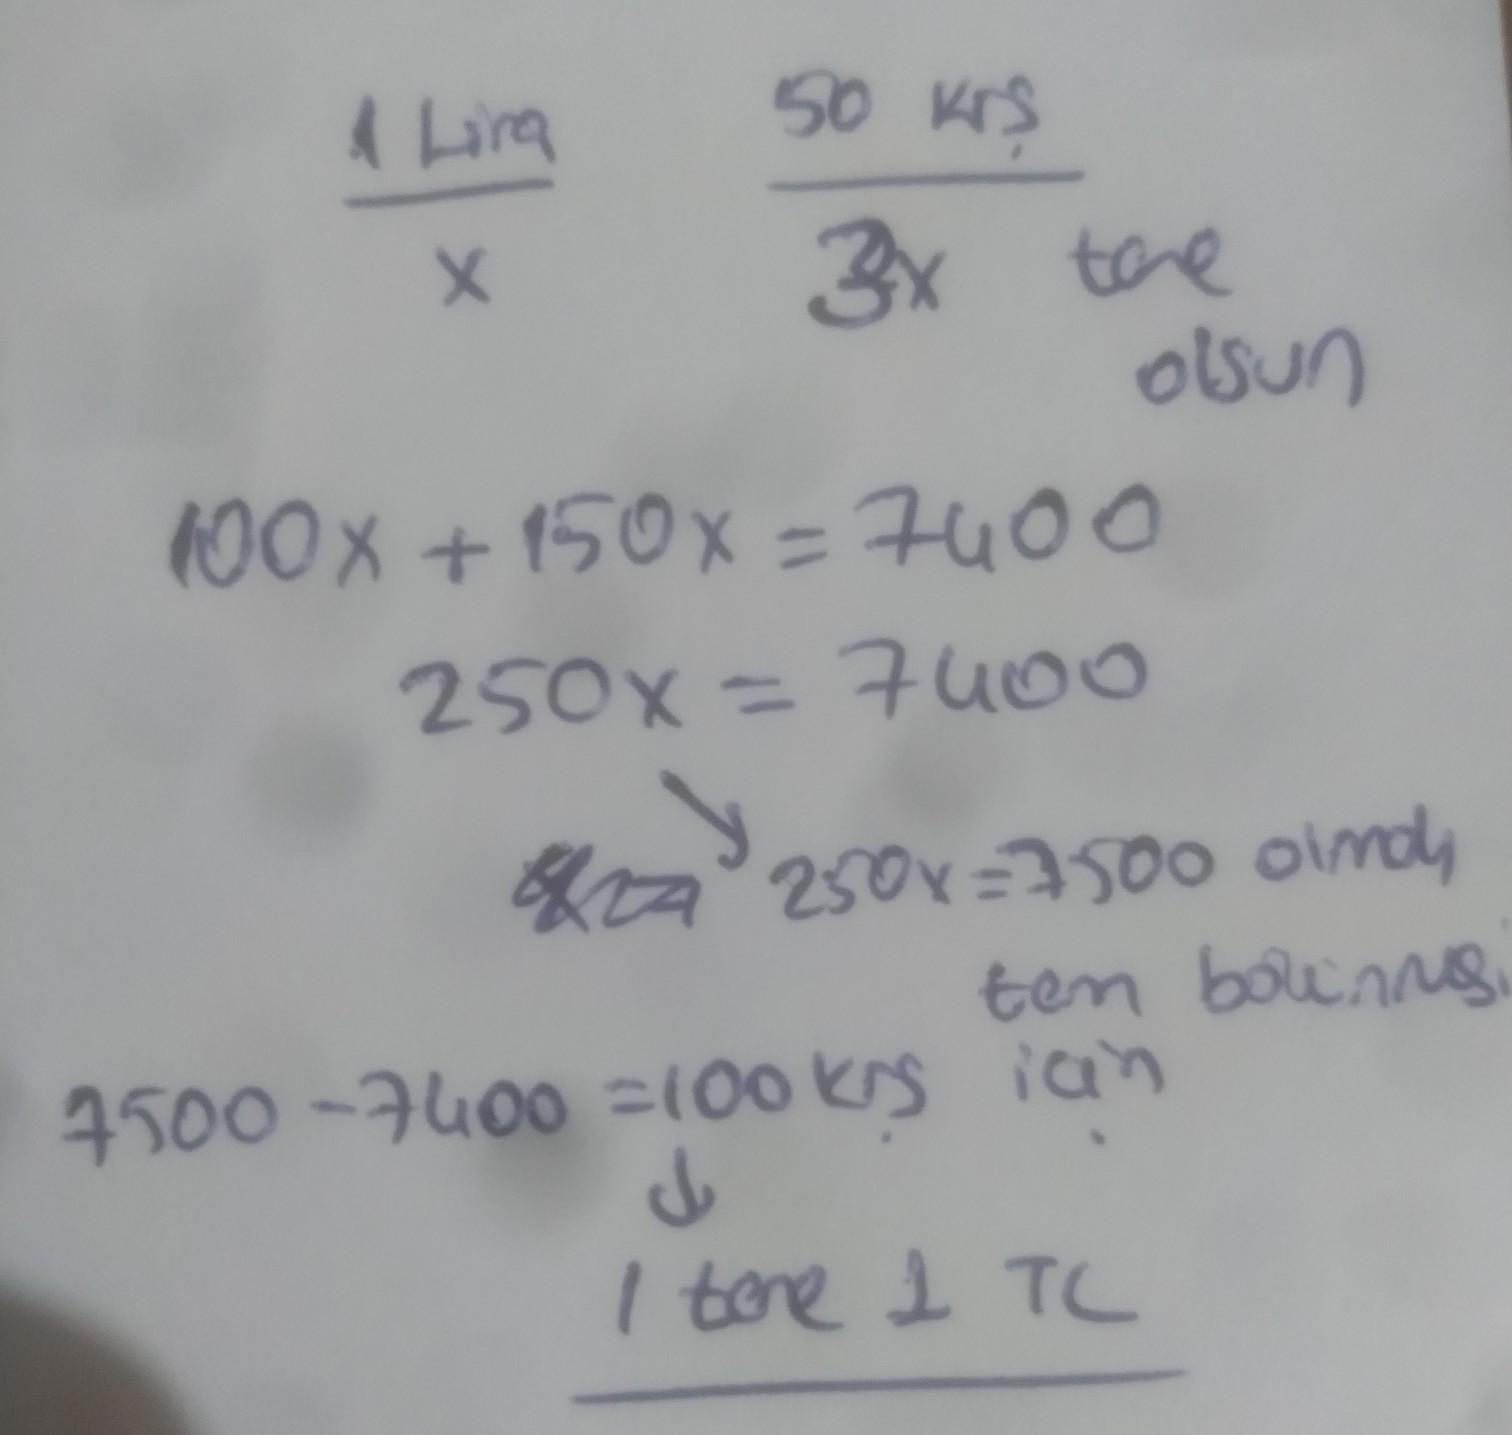 1 Lira 50 krş
x 3x tane
olsun
100x + 150x = 7400
250x = 7400
250x = 7500 olmalı
tam bölünmesi
için
7500 - 7400 = 100 krş
1 tane 1 TL